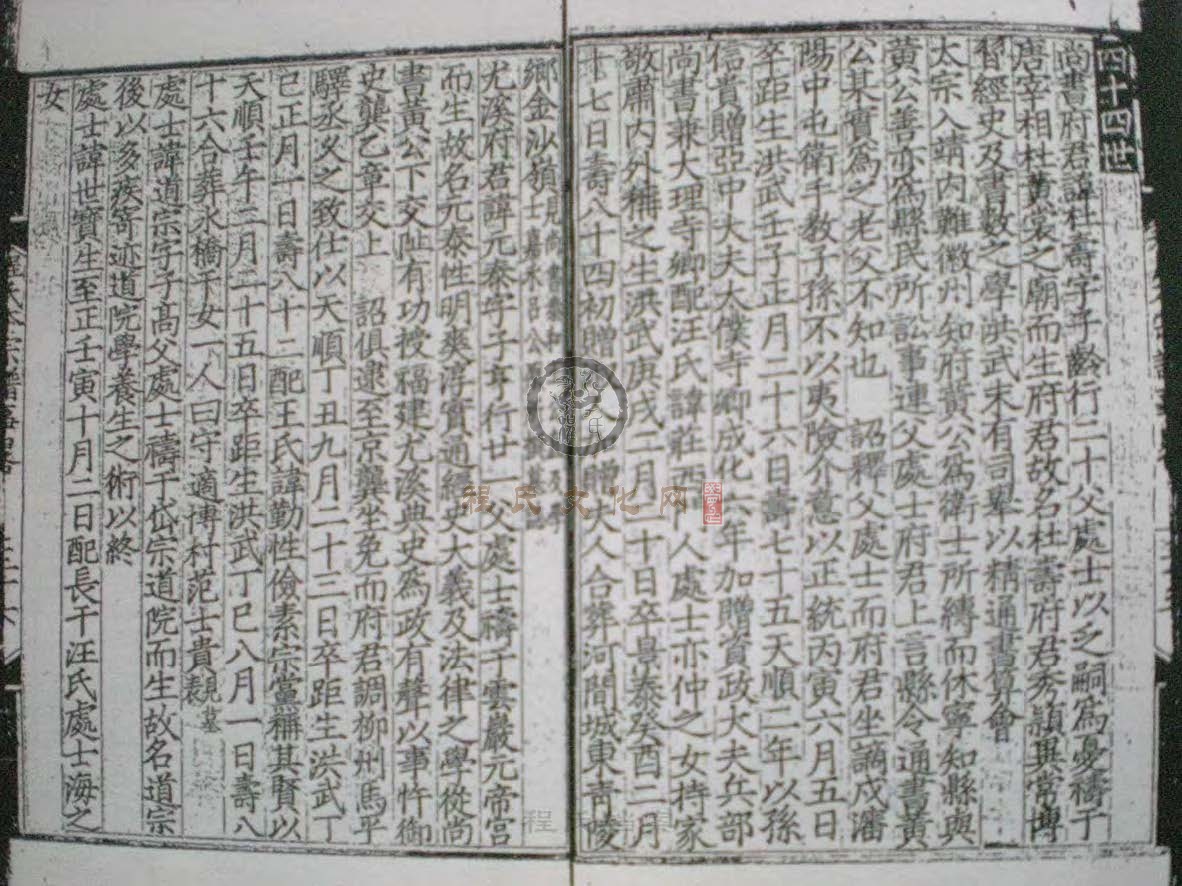 四十四世
尚書府君諱杜壽字子齡行二十父處士以乏嗣為憂禱于
唐宰相杜黃裳之廟而生府君故名杜壽府君秀頴異常博
習經史及書數之學洪武末有司舉以精通書算會
太宗入靖內難徽州知府黃公為衛士所縛而休寧知縣與
黃公善亦為縣民所訟事連父處士府君上言縣令通書黃
公某實為之老父不知也 詔釋父處士而府君坐謫戍瀋
陽中屯衛手教子孫不以夷險介意以正統丙寅六月五日
卒距生洪武壬子正月二十六日壽七十五天順二年以孫
信貴贈亞中大夫太僕寺卿成化六年加贈資政大夫兵部
尚書兼大理寺卿配汪氏諱莊 人處士亦仲之女持家
敬肅內外稱之生洪武庚戌二月二十日卒景泰癸酉二月
十七日壽八十四初贈 人 贈夫人合葬河間城東青陵
鄉金沙嶺
尤溪府君諱元泰字子亨行廿一父處士禱于雲巖元帝宮
而生故名元泰性明爽淳實通經史大義及法律之學從尚
書黃公下交阯有功授福建尤溪典史為政有聲以事忤御
史龔乙章交上 詔俱逮至京龔坐免而府君調柳州馬平
驛丞久之致仕以天順丁丑九月二十三日卒距生洪武丁
巳正月一日壽八十二配王氏諱勐性儉素宗黨稱其賢以
天順壬午二月二十五日卒距生洪武丁巳八月一日壽八
十六合葬水橋干女一人曰守適博村范士貴
處士諱道宗字子高父處士禱于岱宗道院而生故名道宗
後以多疾寄迹道院學養生之術以終
處士諱世寶生至正壬寅十月二日配長干汪氏處士海之
女
程氏文化网